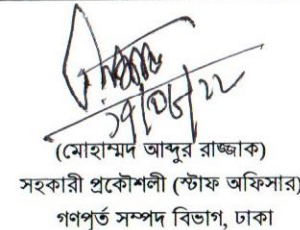 (মোহাম্মদ আব্দুর রাজ্জাক)
সহকারী প্রকৌশলী (স্টাফ অফিসার)
গণপূর্ত সম্পদ বিভাগ, ঢাকা